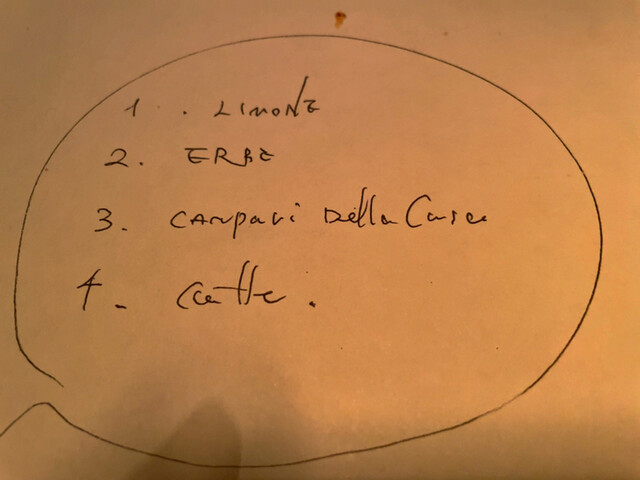 1. LIMONE
2. ERBE
3. CAMPARI DELLA Casa
4. Caffe.